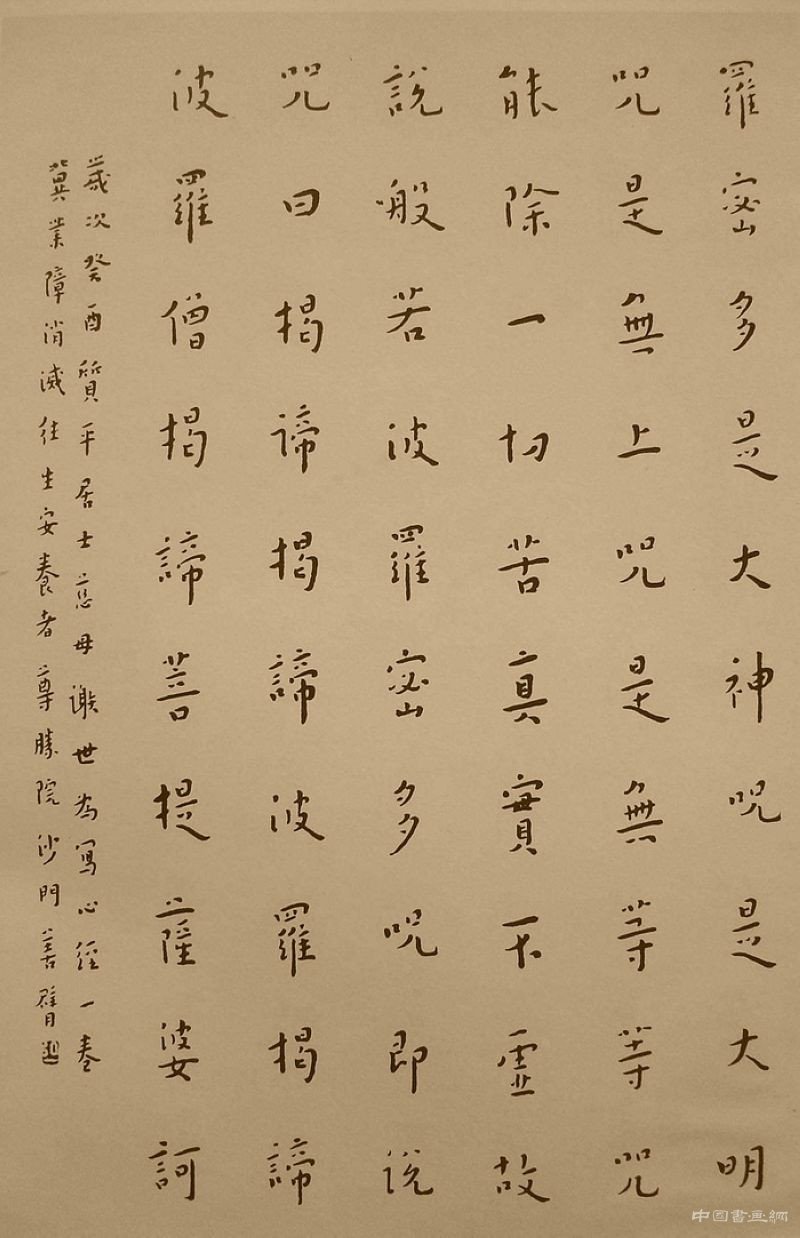 羅密多是大神呪是大明
呪是無上呪是無等等呪
能除一切苦真實不虛故
說般若波羅密多呪即说
呪曰揭諦揭諦波羅揭諦
波羅僧揭諦菩提薩婆訶
歲次癸酉質平居士慈母謝世為寫心經一卷
冀業障消滅往生安養者尊勝院沙門善臂
中國書画網